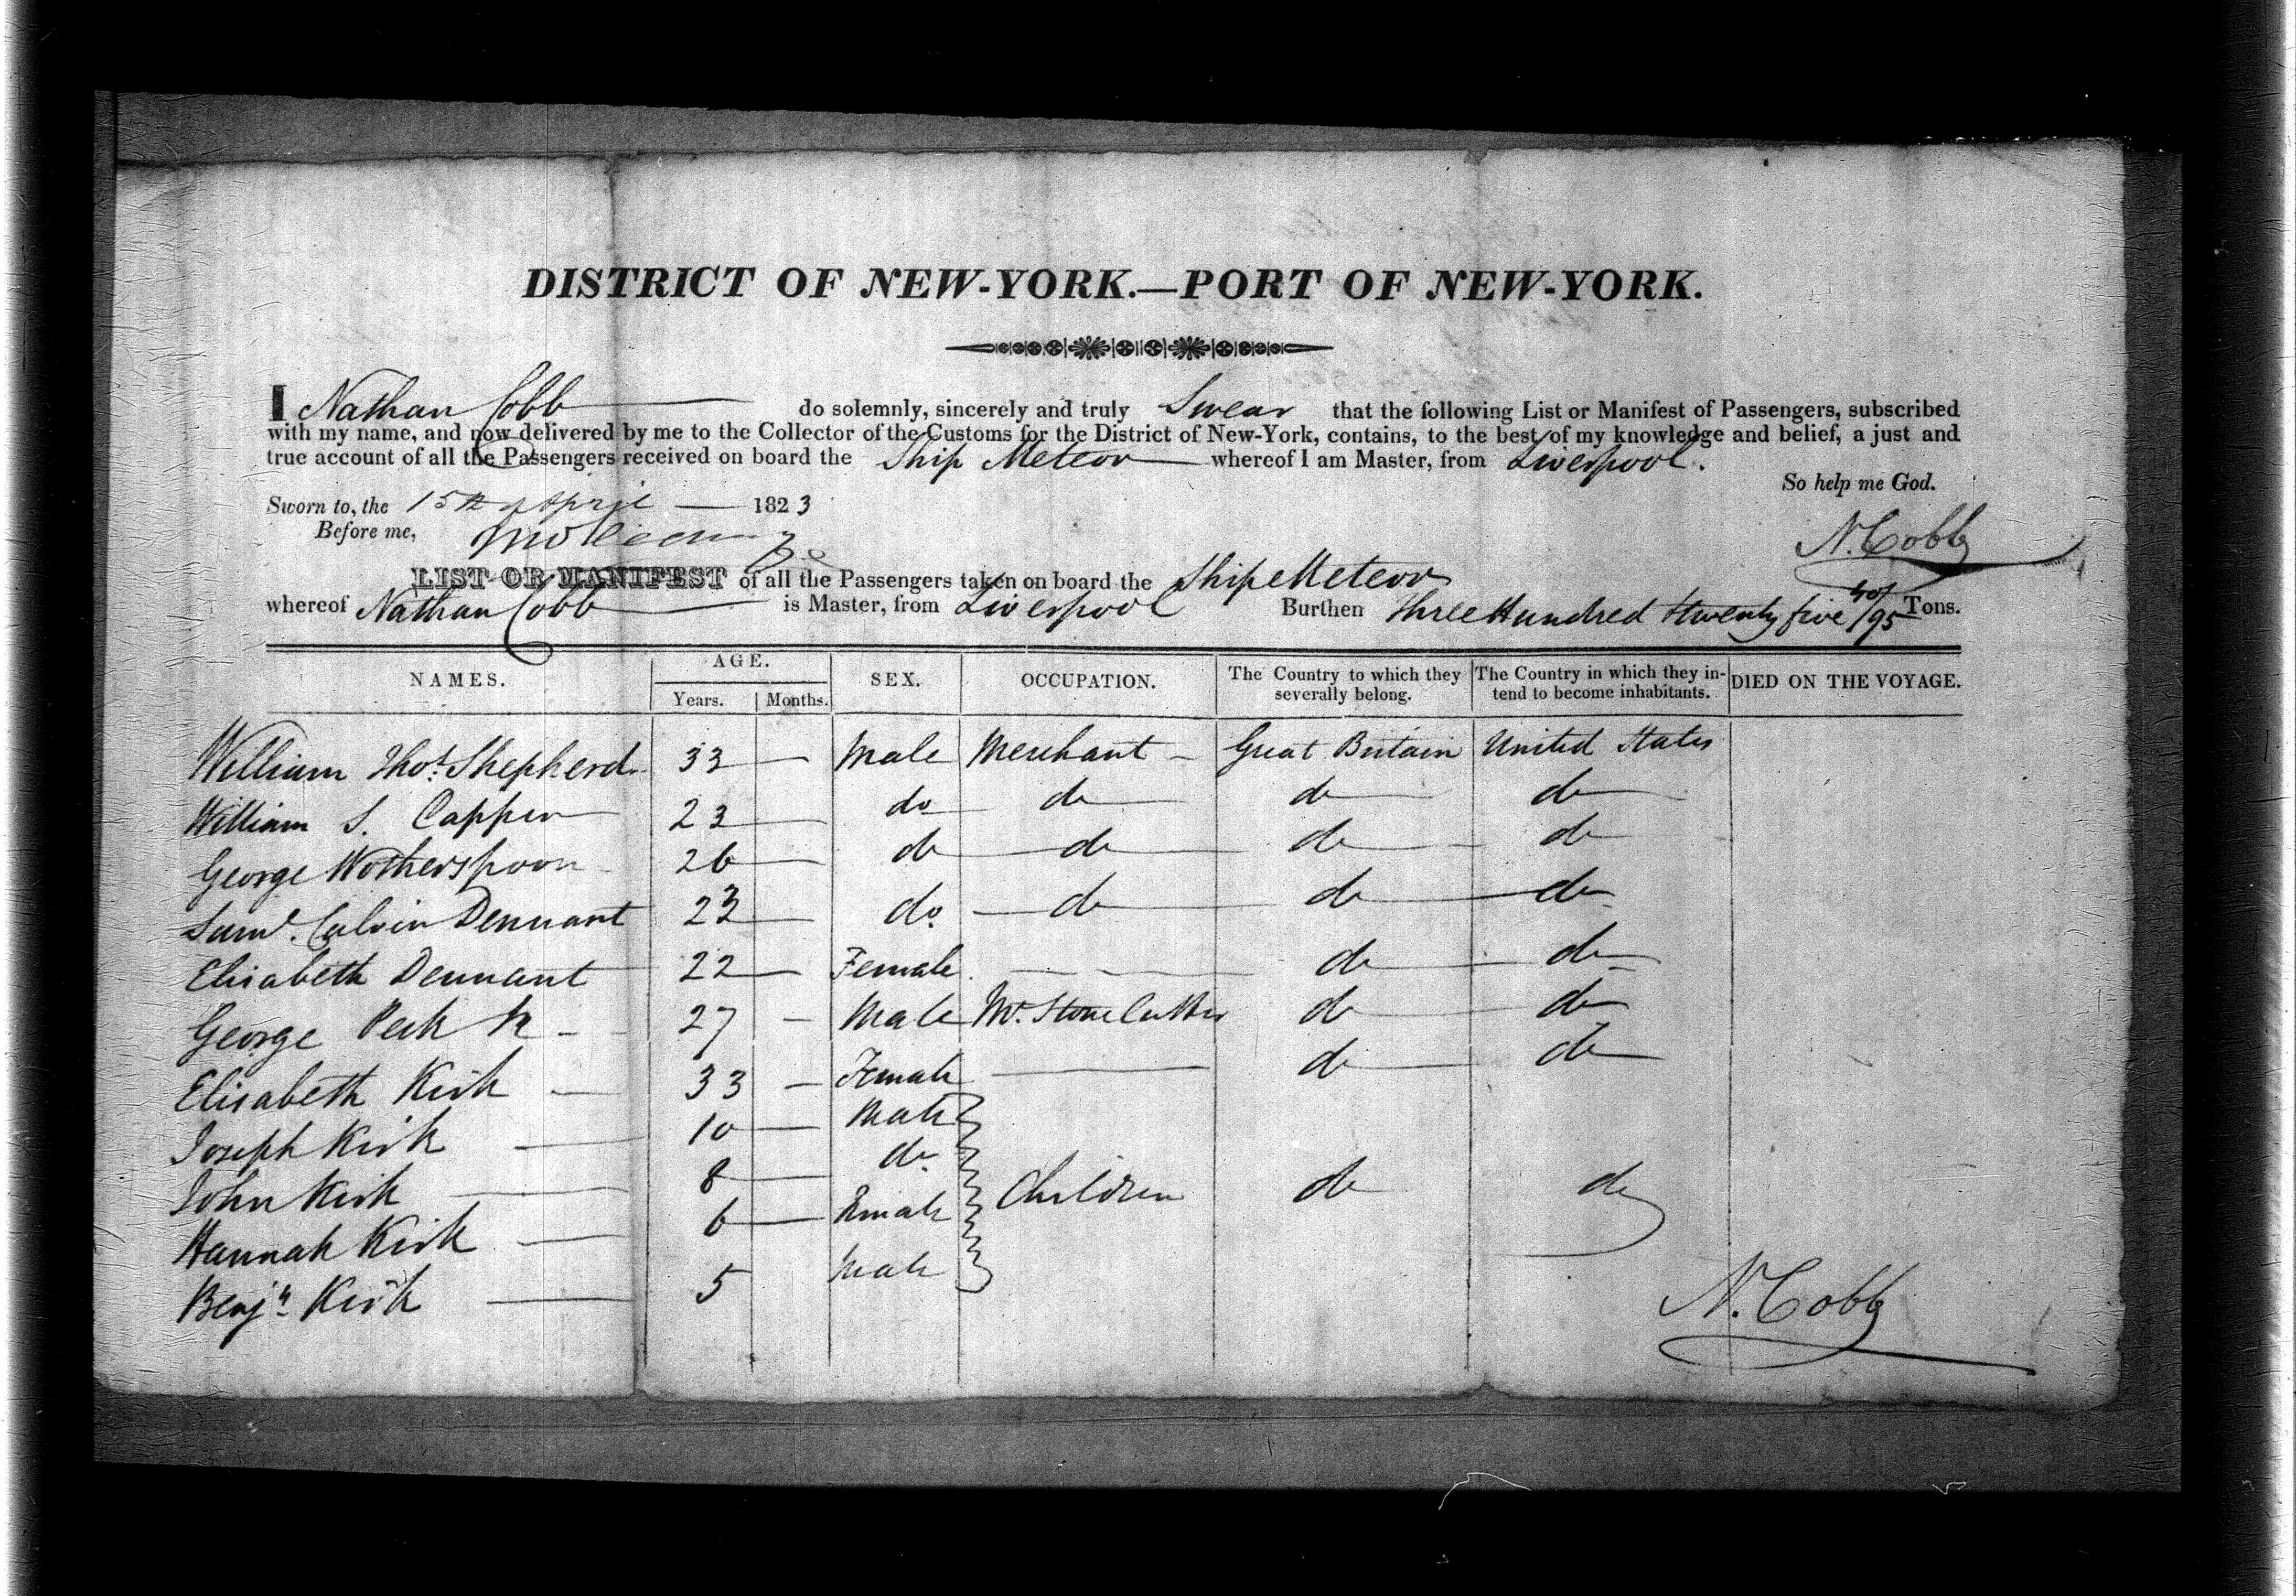 DISTRICT OF NEW-YORK.—PORT OF NEW-YORK.
I Nathan Cobb do solemnly, sincerely and truly Swear that the following List or Manifest of Passengers, subscribed
with my name, and now delivered by me to the Collector of the Customs for the District of New-York, contains, to the best of my knowledge and belief, a just and
true account of all the Passengers received on board the Ship Meteor whereof I am Master, from Liverpool.
So help me God.
Sworn to, the 15th April 1823
Before me,
N. Cobb
LIST OR MANIFEST of all the Passengers taken on board the Ship Meteor
whereof Nathan Cobb is Master, from Liverpool Burthen Three Hundred & twenty five 40/95 Tons.
NAMES. AGE. Years. Months. SEX. OCCUPATION. The Country to which they severally belong. The Country in which they intend to become inhabitants. DIED ON THE VOYAGE.
William Thos. Shepherd 33 — Male Merchant — Great Britain United States
William S. Capper 23 — do do do do
George Wotherspoon 26 — do do do do
Saml. Calvin Dennant 23 — do do do do
Elisabeth Dennant 22 — Female — do do
George Peek 27 — Male Stone Cutter do do
Elisabeth Kirk — 33 — Female — do do
Joseph Kirk — 10 — Male
John Kirk — 8 — do
Hannah Kirk — 6 — Female Children do do
Benjn. Kirk — 5 Male
N. Cobb